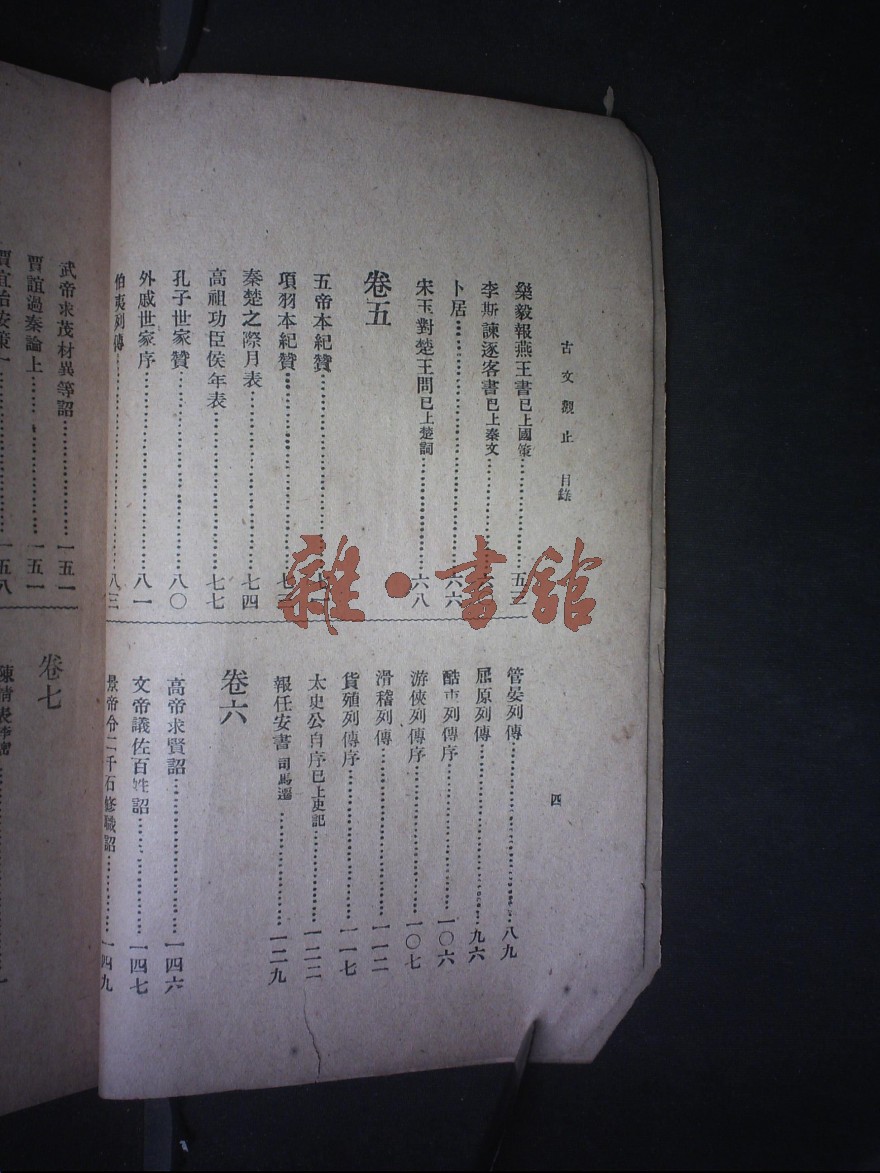 古文觀止 目錄
四
樂毅報燕王書已上國策
李斯諫逐客書已上秦文
卜居 六六
宋玉對楚王問已上楚詞 六八
卷五
五帝本紀贊
項羽本紀贊
秦楚之際月表 七四
高祖功臣侯年表 七七
孔子世家贊 八〇
外戚世家序 八一
伯夷列傳 八三
管晏列傳 八九
屈原列傳 九六
酷吏列傳序 一〇六
游俠列傳序 一〇七
滑稽列傳 一一二
貨殖列傳序 一一七
太史公自序已上史記 一二二
報任安書 司馬遷 一二九
卷六
高帝求賢詔 一四六
文帝議佐百姓詔 一四七
景帝令二千石修職詔 一四九
武帝求茂材異等詔 一五一
賈誼過秦論上 一五一
賈誼治安策一 一五八
卷七
陳情表李密
雜·書館